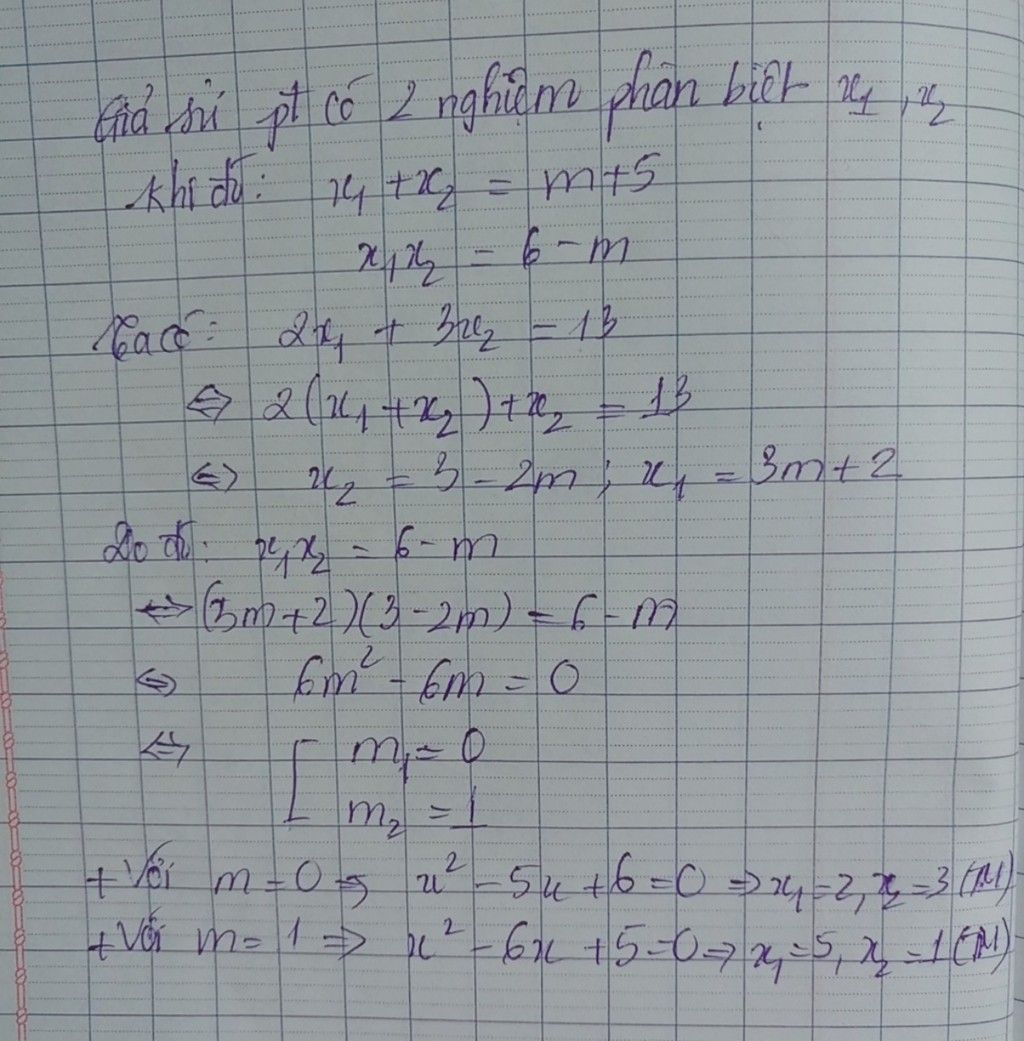 Giả sử pt có 2 nghiệm phân biệt x₁, x₂
Khi đó: x₁ + x₂ = m+5
x₁x₂ = 6 - m
Ta có: 2x₁ + 3x₂ = 13
⇔ 2(x₁ + x₂) + x₂ = 13
⇔ x₂ = 3 - 2m ; x₁ = 3m + 2
Do đó: x₁x₂ = 6 - m
⇔ (3m+2)(3-2m) = 6 - m
⇔ 6m² - 6m = 0
⇔ [ m₁ = 0
m₂ = 1
+ Với m = 0 ⇒ x² - 5x + 6 = 0 ⇒ x₁ = 2, x₂ = 3 (TM)
+ Với m = 1 ⇒ x² - 6x + 5 = 0 ⇒ x₁ = 5, x₂ = 1 (TM)